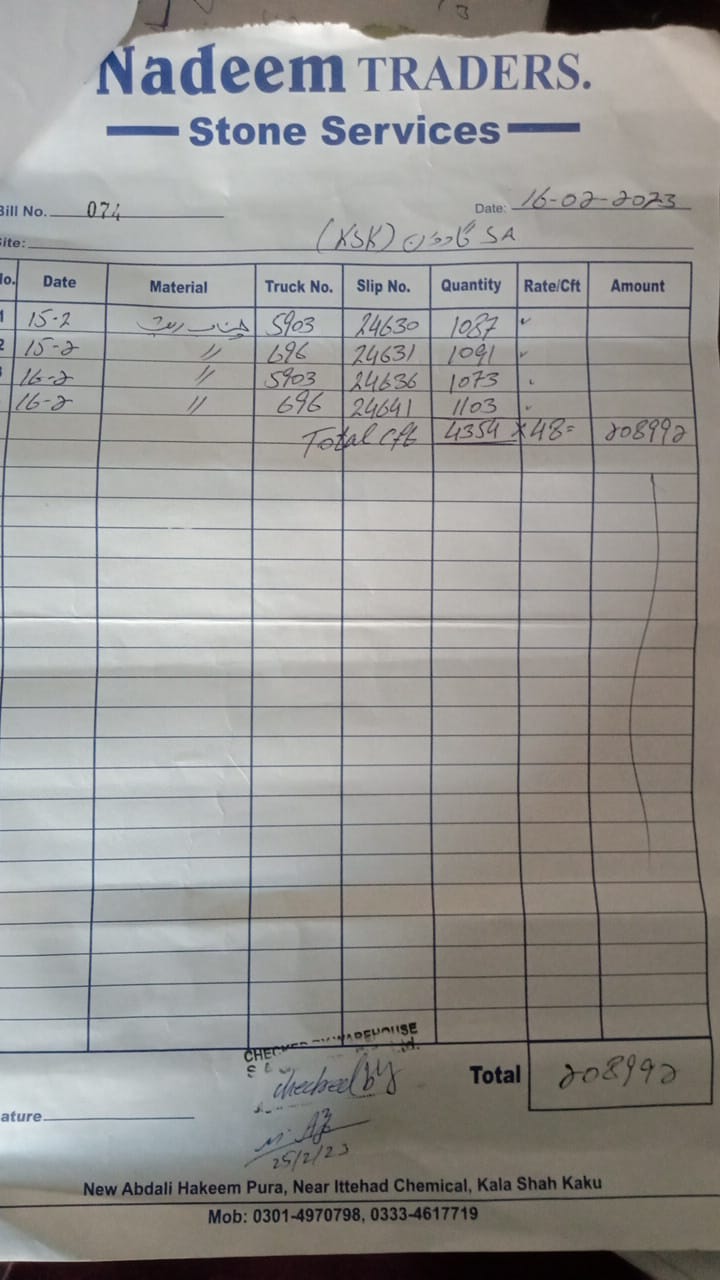 Nadeem TRADERS.
Stone Services
Bill No. 074
Date: 16-02-2023
ite: SA گارڈن (KSK)
o. Date Material Truck No. Slip No. Quantity Rate/Cft Amount
1 15-2 چناب ریت 5903 24630 1087
2 15-2 〃 696 24631 1091
16-2 〃 5903 24636 1073
16-2 〃 696 24641 1103
Total Cft 4354 × 48= 208992
CHECKED BY WAREHOUSE
checked by
25/2/23
Total 208992
ature
New Abdali Hakeem Pura, Near Ittehad Chemical, Kala Shah Kaku
Mob: 0301-4970798, 0333-4617719